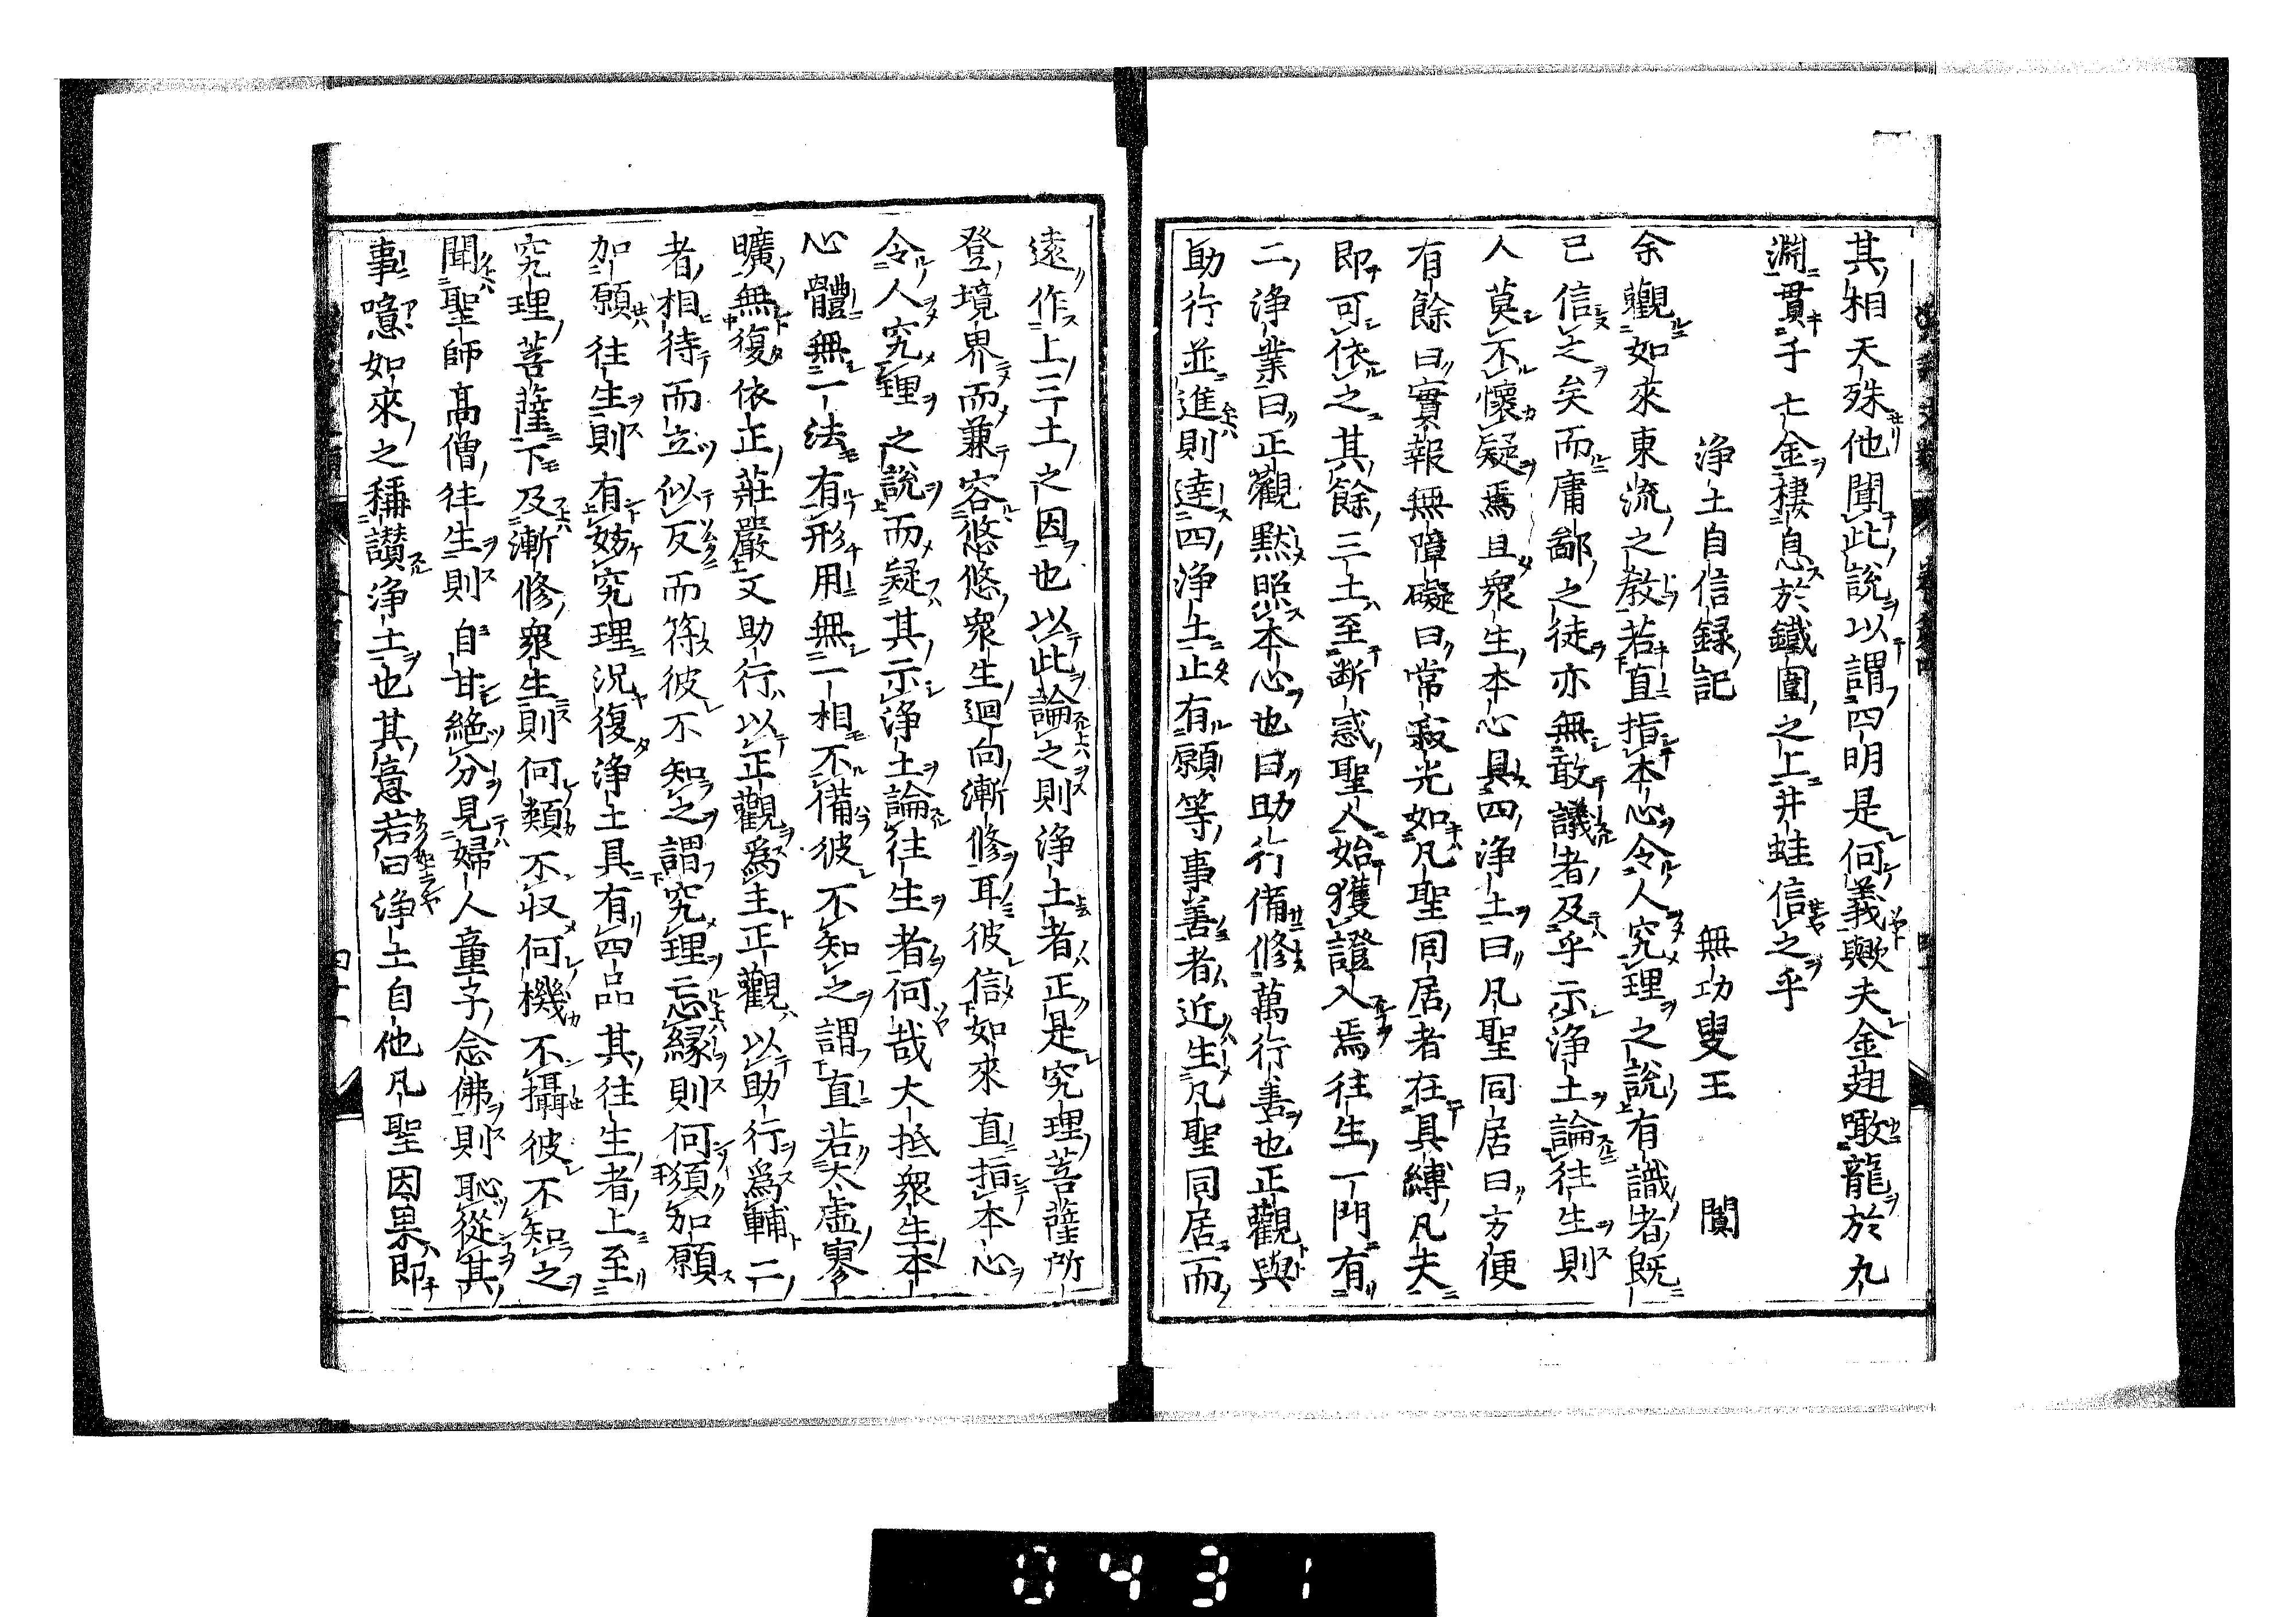 其相天殊他聞此說以謂四明是何義歟夫金翅噉龍於九
淵貫千七金棲息於鐵圍之上井蛙信之乎
浄土自信録記 無功叟王 闐
余觀如來東流之教若直指本心令人究理之說有識者既
已信之矣而庸鄙之徒亦無敢議者及乎示浄土論往生則
人莫不懷疑焉且衆生本心具四浄土曰凡聖同居曰方便
有餘曰實報無障礙曰常寂光如凡聖同居者在具縛凡夫
即可依之其餘三土至断惑聖人始獲證入焉往生一門有
二浄業曰正觀默照本心也曰助行備修萬行善也正觀與
助行並進則達四浄土止有願等事善者近生凡聖同居而
遠作上三土之因也以此論之則浄土者正是究理菩薩所
登境界而兼容悠悠衆生迴向漸修耳彼信如來直指本心
令人究理之說而疑其示浄土論往生者何哉大抵衆生本
心體無一法有形用無二相不備彼不知之謂直若太虚寥
曠無復依正莊嚴文助行以正觀爲主正觀以助行爲輔二
者相待而立似反而符彼不知之謂究理忘縁則何須加願
加願往生則有妨究理況復浄土具有四品其往生者上至
究理菩薩下及漸修衆生則何類不収何機不攝彼不知之
聞聖師高僧往生則自甘絶分見婦人童子念佛則恥從其
事噫如來之稱讃浄土也其意若曰浄土自他凡聖因果即
四十一
0431